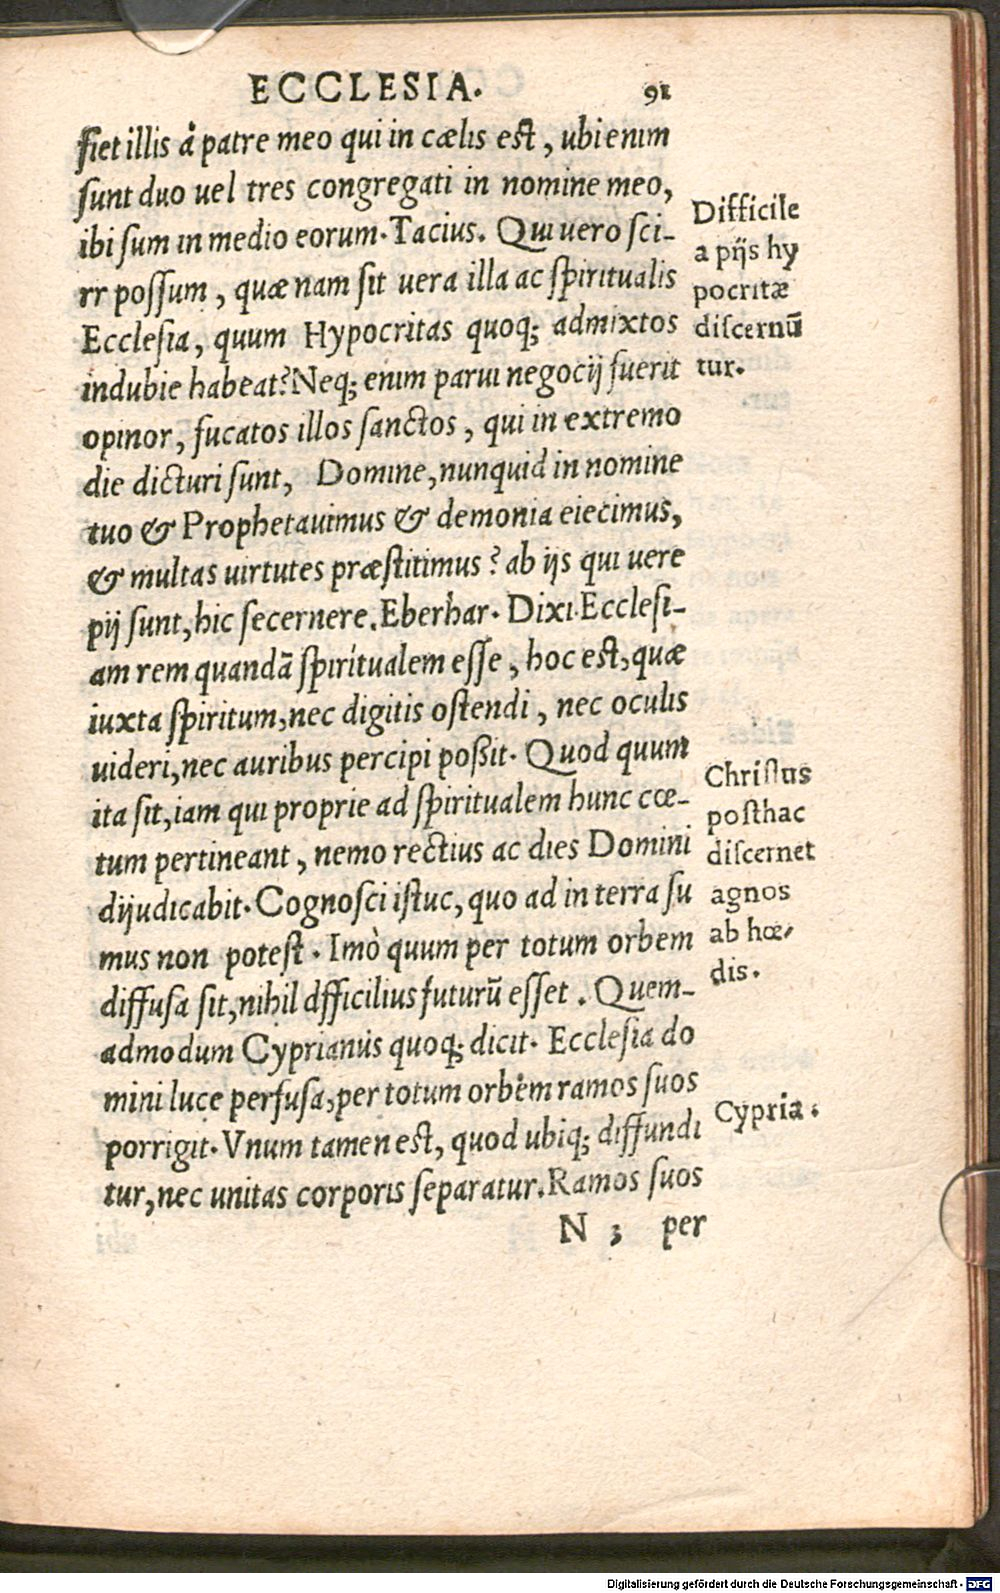 ECCLESIA. 91
fiet illis à patre meo qui in cælis est, ubi enim
sunt duo uel tres congregati in nomine meo,
ibi sum in medio eorum. Tacius. Qui uero sci-
rr possum, quæ nam sit uera illa ac spiritualis
Ecclesia, quum Hypocritas quoq; admixtos
indubie habeat? Neq; enim parui negocij fuerit
opinor, fucatos illos sanctos, qui in extremo
die dicturi sunt, Domine, nunquid in nomine
tuo & Prophetauimus & demonia eiecimus,
& multas uirtutes præstitimus? ab ijs qui uere
pij sunt, hic secernere. Eberhar. Dixi Ecclesi-
am rem quandā spiritualem esse, hoc est, quæ
iuxta spiritum, nec digitis ostendi, nec oculis
uideri, nec auribus percipi poßit. Quod quum
ita sit, iam qui proprie ad spiritualem hunc cœ-
tum pertineant, nemo rectius ac dies Domini
dijudicabit. Cognosci istuc, quo ad in terra su
mus non potest. Imò quum per totum orbem
diffusa sit, nihil dfficilius futurū esset. Quem-
admodum Cyprianus quoq; dicit. Ecclesia do
mini luce perfusa, per totum orbem ramos suos
porrigit. Vnum tamen est, quod ubiq; diffundi
tur, nec unitas corporis separatur. Ramos suos
N 3 per
Difficile
a pijs hy
pocritæ
discernū
tur.
Christus
posthac
discernet
agnos
ab hœ-
dis.
Cypria.
Digitalisierung gefördert durch die Deutsche Forschungsgemeinschaft - DFG